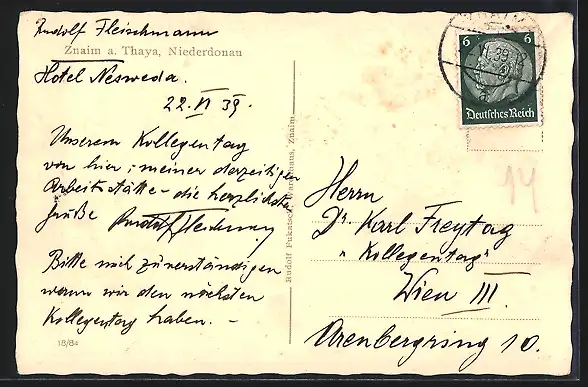 Rudolf Fleischmann
Znaim a. Thaya, Niederdonau
Hotel Nesweda.
22. VI 39.
Unserem Kollegentag
von hier, meiner derzeitigen
Arbeitsstätte - die herzlichsten
Grüße Rudolf Fleischmann
Bitte mich zu verständigen
wann wir den nächsten
Kollegentag haben. -
18/84
Rudolf Fukatsch, Warenhaus, Znaim
ZNAIM
6 6
Deutsches Reich
14
Herrn
Dr. Karl Freytag
"Kollegentag"
Wien III.
Arenbergring 10.